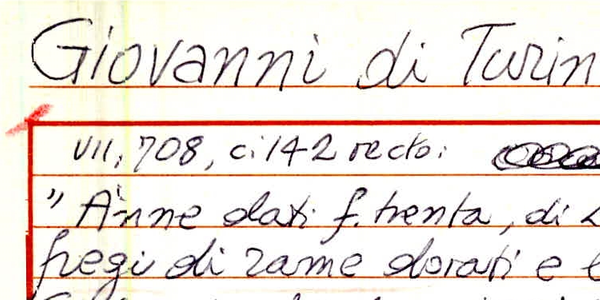 Giovanni di Turin
VII, 708, c. 142 recto:
" Anne dati f. trenta, di
fregi di rame dorati e